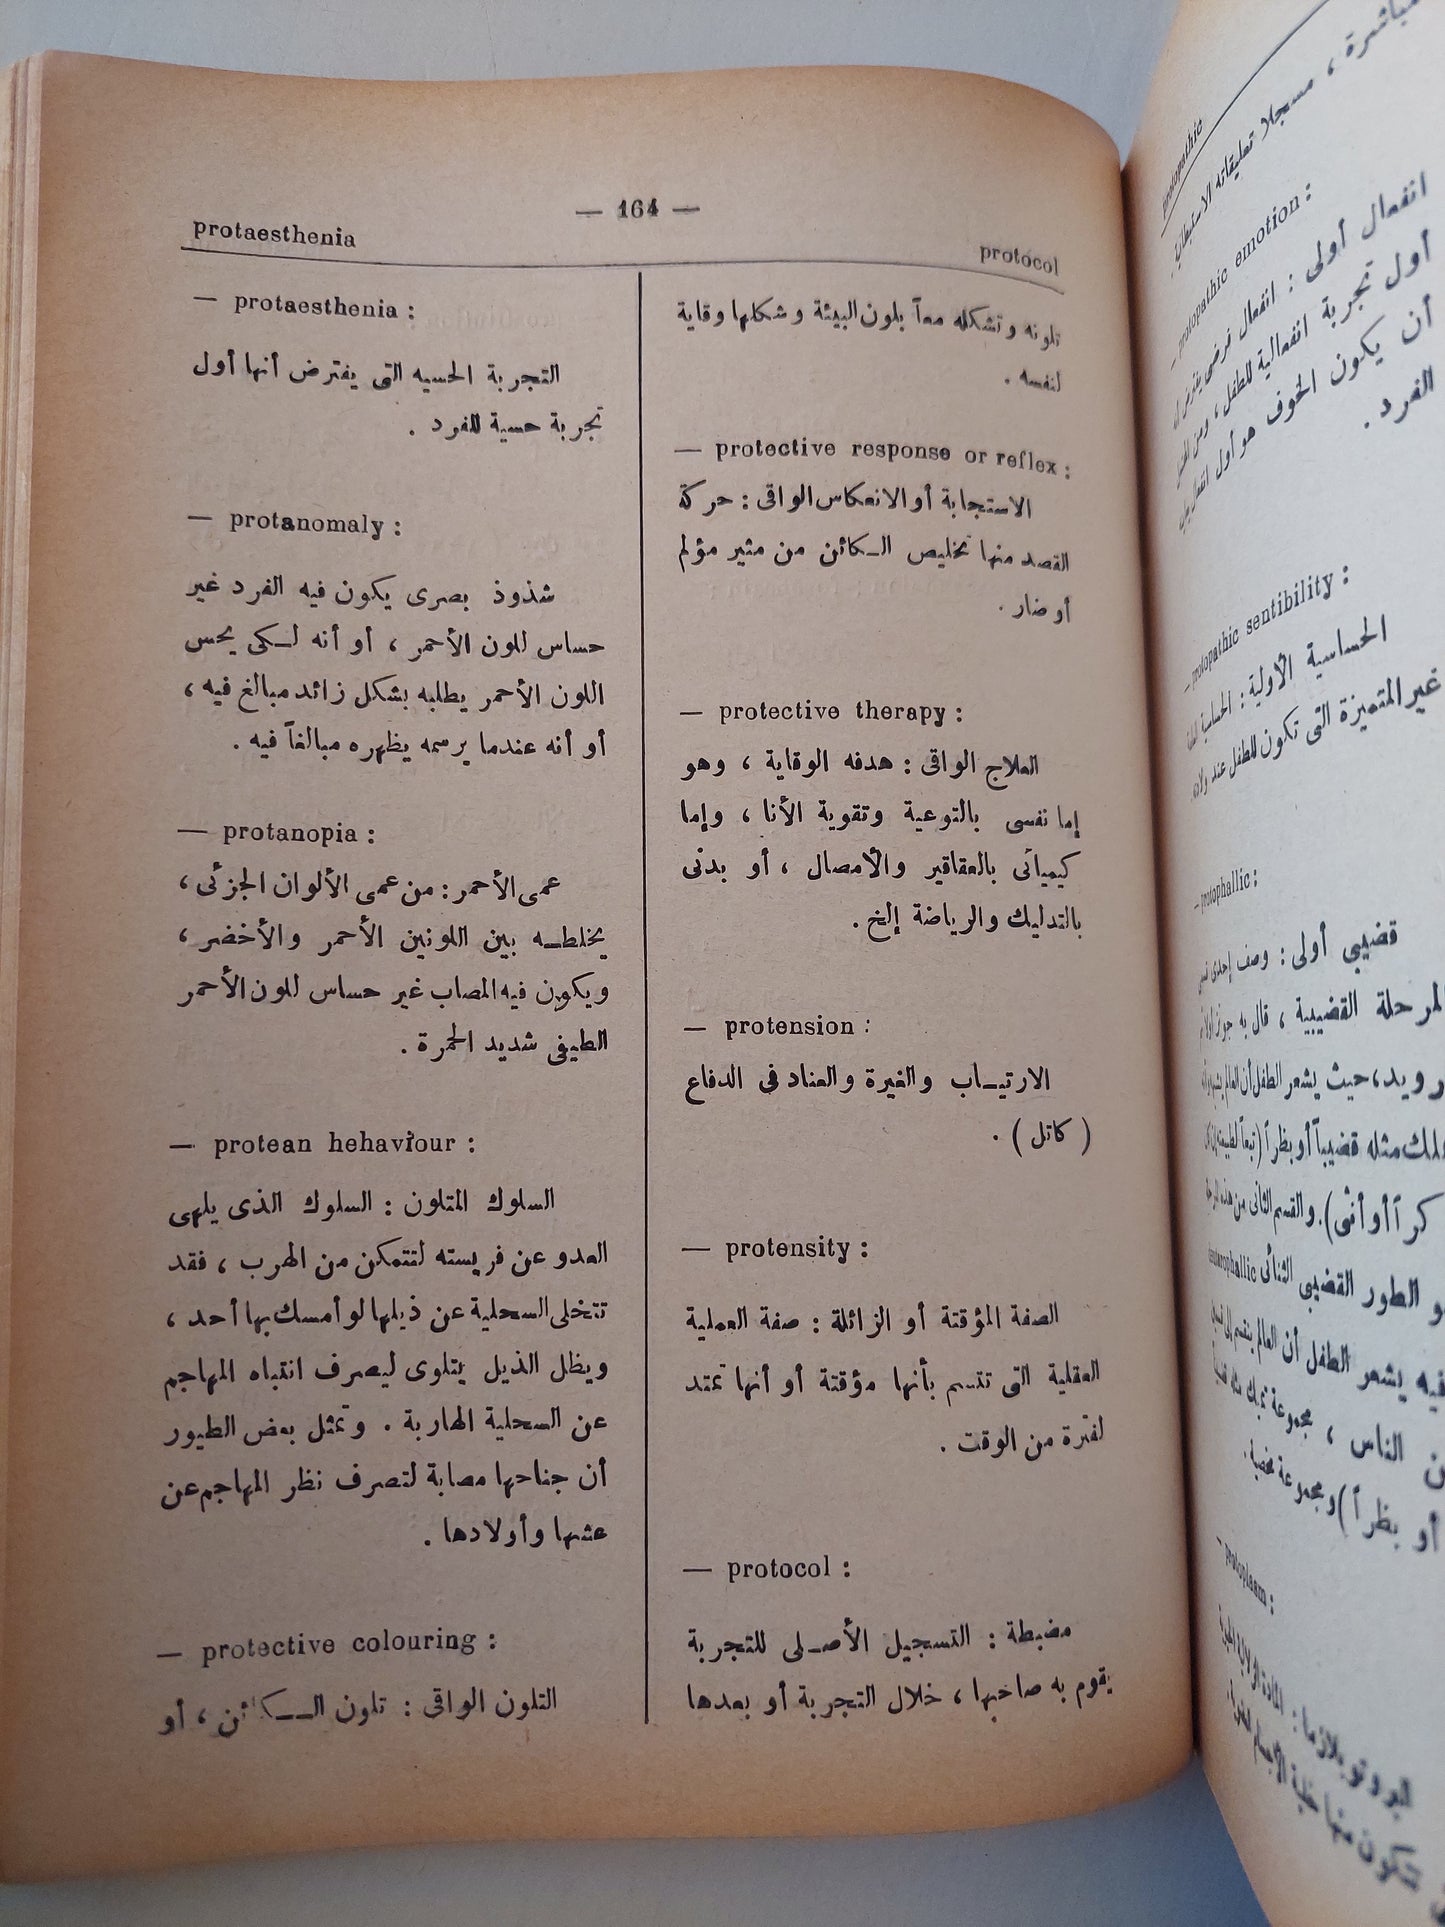 — 164 —
protaesthenia
protocol
— protaesthenia :
التجربة الحسيه التى يفترض أنها أول
تجربة حسية للفرد .
— protanomaly :
شذوذ بصرى يكون فيه الفرد غير
حساس للون الأحمر ، أو أنه لـكى يحس
اللون الأحمر يطلبه بشكل زائد مبالغ فيه ،
أو أنه عندما يرسمه يظهره مبالغاً فيه .
— protanopia :
عمى الأحمر : من عمى الألوان الجزئى ،
يخلطـه بين اللونين الأحمر والأخضر ،
ويكون فيه المصاب غير حساس للون الأحمر
الطيفى شديد الحمرة .
— protean hehaviour :
السلوك المتلون : السلوك الذى يلهى
العدو عن فريسته لتتمكن من الهرب ، فقد
تتخلى السحلية عن ذيلها لو أمسك بها أحد ،
ويظل الذيل يتلوى ليصرف انتباه المهاجم
عن السحلية الهاربة . وتمثل بعض الطيور
أن جناحها مصابة لتصرف نظر المهاجم عن
عشها وأولادها .
— protective colouring :
التلون الواقى : تلون الـــكائن ، أو
تلونه وتشكله معاً بلون البيئة وشكلها وقاية
لنفسه .
— protective response or reflex :
الاستجابة أو الانعكاس الواقى : حركة
القصد منها تخليص الـكائن من مثير مؤلم
أو ضار .
— protective therapy :
العلاج الواقى : هدفه الوقاية ، وهو
إما نفسى بالتوعية وتقوية الأنا ، وإما
كيميائى بالعقاقير والأمصال ، أو بدنى
بالتدليك والرياضة إلخ .
— protension :
الارتيـاب والغيرة والعناد فى الدفاع
( كاتل ) .
— protensity :
الصفة المؤقتة أو الزائلة : صفة العملية
العقلية التى تتسم بأنها مؤقتة أو أنها تمتد
لفترة من الوقت .
— protocol :
مضبطة : التسجيل الأصـلى للتجربة
يقوم به صاحبها ، خلال التجربة أو بعدها
protopathic
مباشرة ، مسجلا تعليقاته الاستبطانية .
— protopathic emotion :
انفعال أولى : انفعال فرضى يفترض أنه
أول تجربة انفعالية للطفل ، ومن المحتمل
أن يكون الخوف هو أول انفعال
الفرد .
— protopathic sentibility :
الحساسية الأولية : الحساسية
غير المتميزة التى تكون للطفل عند ولادته
— protophallic :
قضيبى أولى : وصف إحدى
المرحلة القضيبية ، قال به جونز
حيث يشعر الطفل أن العالم
مثله قضيباً أو بظراً (تبعاً
أو أنثى) . والقسم الثانى من هذه المرحلة
الطور القضيبى الثنائى deuterophallic
فيه يشعر الطفل أن العالم ينقسم إلى
الناس ، مجموعة تملك مثله
أو بظراً ) ومجموعة مخصية .
— protoplasm :
البروتوبلازما : المادة